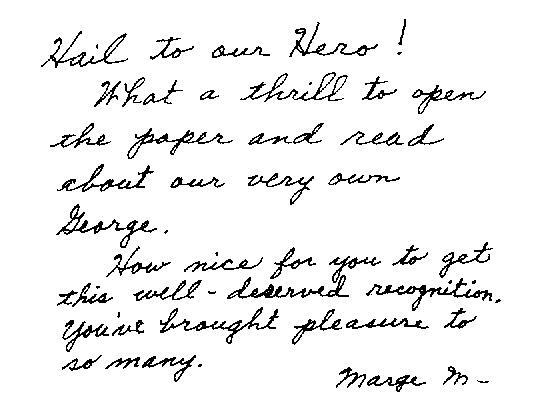 Hail to our Hero!
What a thrill to open
the paper and read
about our very own
George.
How nice for you to get
this well-deserved recognition.
You've brought pleasure to
so many.
Marge M-